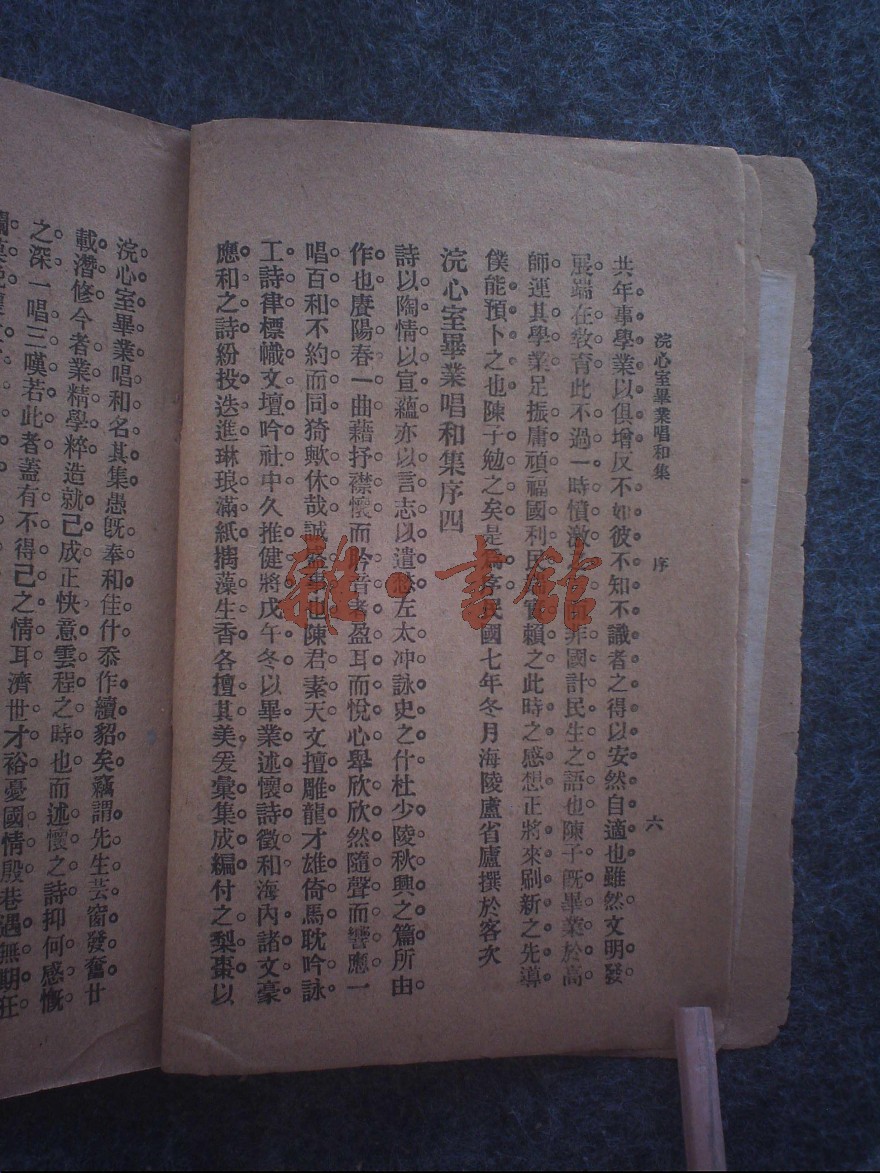 浣心室畢業唱和集 序 六
共年事學業以俱增反不如彼不知不識者之得以安然自適也雖然文明發
展端在敎育此不過一時憤激 非國計民生之語也陳子旣畢業於高
師運其學業足振庸頑福國利民 實賴之此時之感想正將來刷新之先導
僕能預卜之也陳子勉之矣是爲序民國七年冬月海陵盧省廬撰於客次
浣心室畢業唱和集序四
詩以陶情以宣蘊亦以言志以遣愁左太冲詠史之什杜少陵秋興之篇所由
作也賡陽春一曲藉抒襟懷而聆音者盈耳而悅心舉欣欣然隨聲而響應一
唱百和不約而同猗歟休哉誠 事也陳君素天文擅雕龍才雄倚馬耽吟詠
工詩律標幟文壇吟社中久推健將戊午冬以畢業述懷詩徵和海內諸文豪
應和之詩紛投迭進琳琅滿紙摛藻生香各擅其美爰彙集成編付之梨棗以
浣心室畢業唱和名其集愚旣奉和佳什忝作續貂矣竊謂先生芸窗發奮廿
載潛修今者業精學粹造就已成正快意雲程之時也而述懷之詩抑何感慨
之深一唱三嘆若此者蓋有不得已之情耳濟世才裕憂國情殷巷遇無期狂
雜·書館